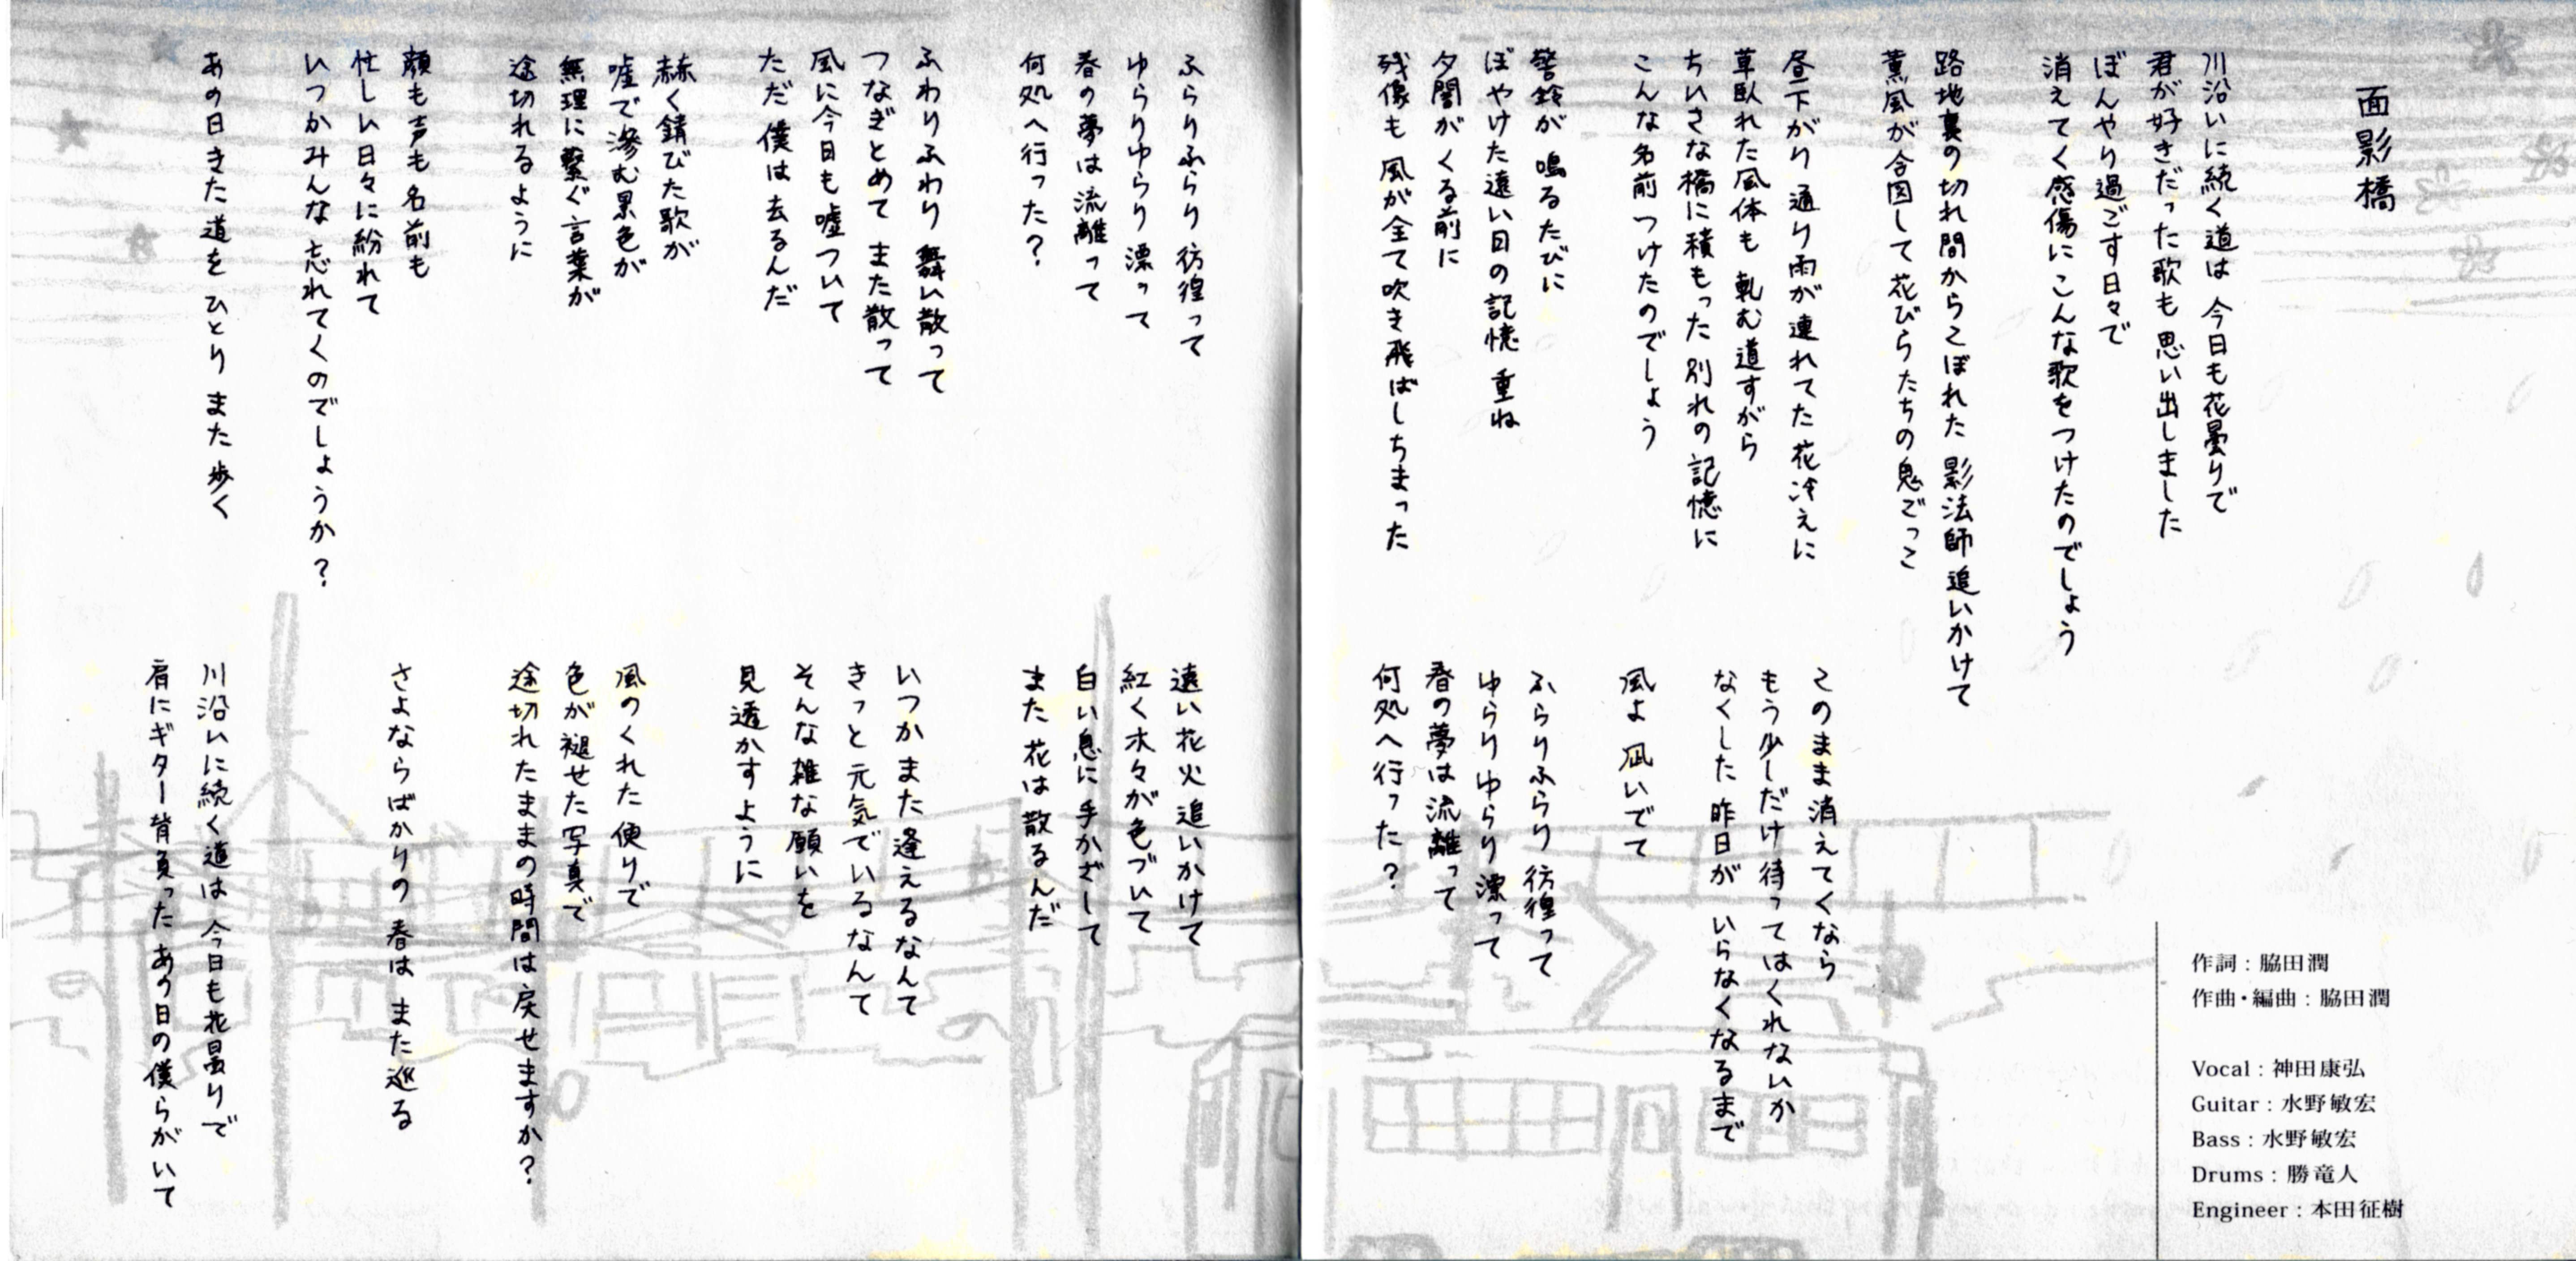 面影橋
川沿いに続く道は 今日も花曇りで
君が好きだった歌も 思い出しました
ぼんやり過ごす日々で
消えてく感傷に こんな歌をつけたのでしょう
路地裏の切れ間からこぼれた 影法師 追いかけて
薫風が合図して 花びらたちの鬼ごっこ
昼下がり 通り雨が連れてた 花冷えに
草臥れた風体も 軋む道すがら
ちいさな橋に積もった 別れの記憶に
こんな名前 つけたのでしょう
警鈴が 鳴るたびに
ぼやけた遠い日の記憶 重ね
夕闇が くる前に
残像も 風が全て吹き飛ばしちまった
このまま消えてくなら
もう少しだけ待ってはくれないか
なくした昨日が いらなくなるまで
風よ 凪いでて
ふらりふらり 彷徨って
ゆらりゆらり 漂って
春の夢は 流離って
何処へ行った?
作詞:脇田潤
作曲・編曲:脇田潤
Vocal:神田康弘
Guitar:水野敏宏
Bass:水野敏宏
Drums:勝竜人
Engineer:本田征樹
ふらりふらり 彷徨って
ゆらりゆらり 漂って
春の夢は 流離って
何処へ行った?
ふわりふわり 舞い散って
つなぎとめて また散って
風に今日も 嘘ついて
ただ 僕は去るんだ
赫く錆びた歌が
嘘で滲む景色が
無理に繋ぐ言葉が
途切れるように
顔も声も 名前も
忙しい日々に紛れて
いつかみんな 忘れてくのでしょうか?
あの日きた道を ひとり また 歩く
遠い花火 追いかけて
紅く木々が色づいて
白い息に 手かざして
また 花は散るんだ
いつかまた 逢えるなんて
きっと元気でいるなんて
そんな雑な願いを
見透かすように
風のくれた便りで
色が褪せた写真で
途切れたままの時間は戻せますか?
さよならばかりの 春は また巡る
川沿いに続く道は 今日も花曇りで
肩にギター背負った あの日の僕らがいて